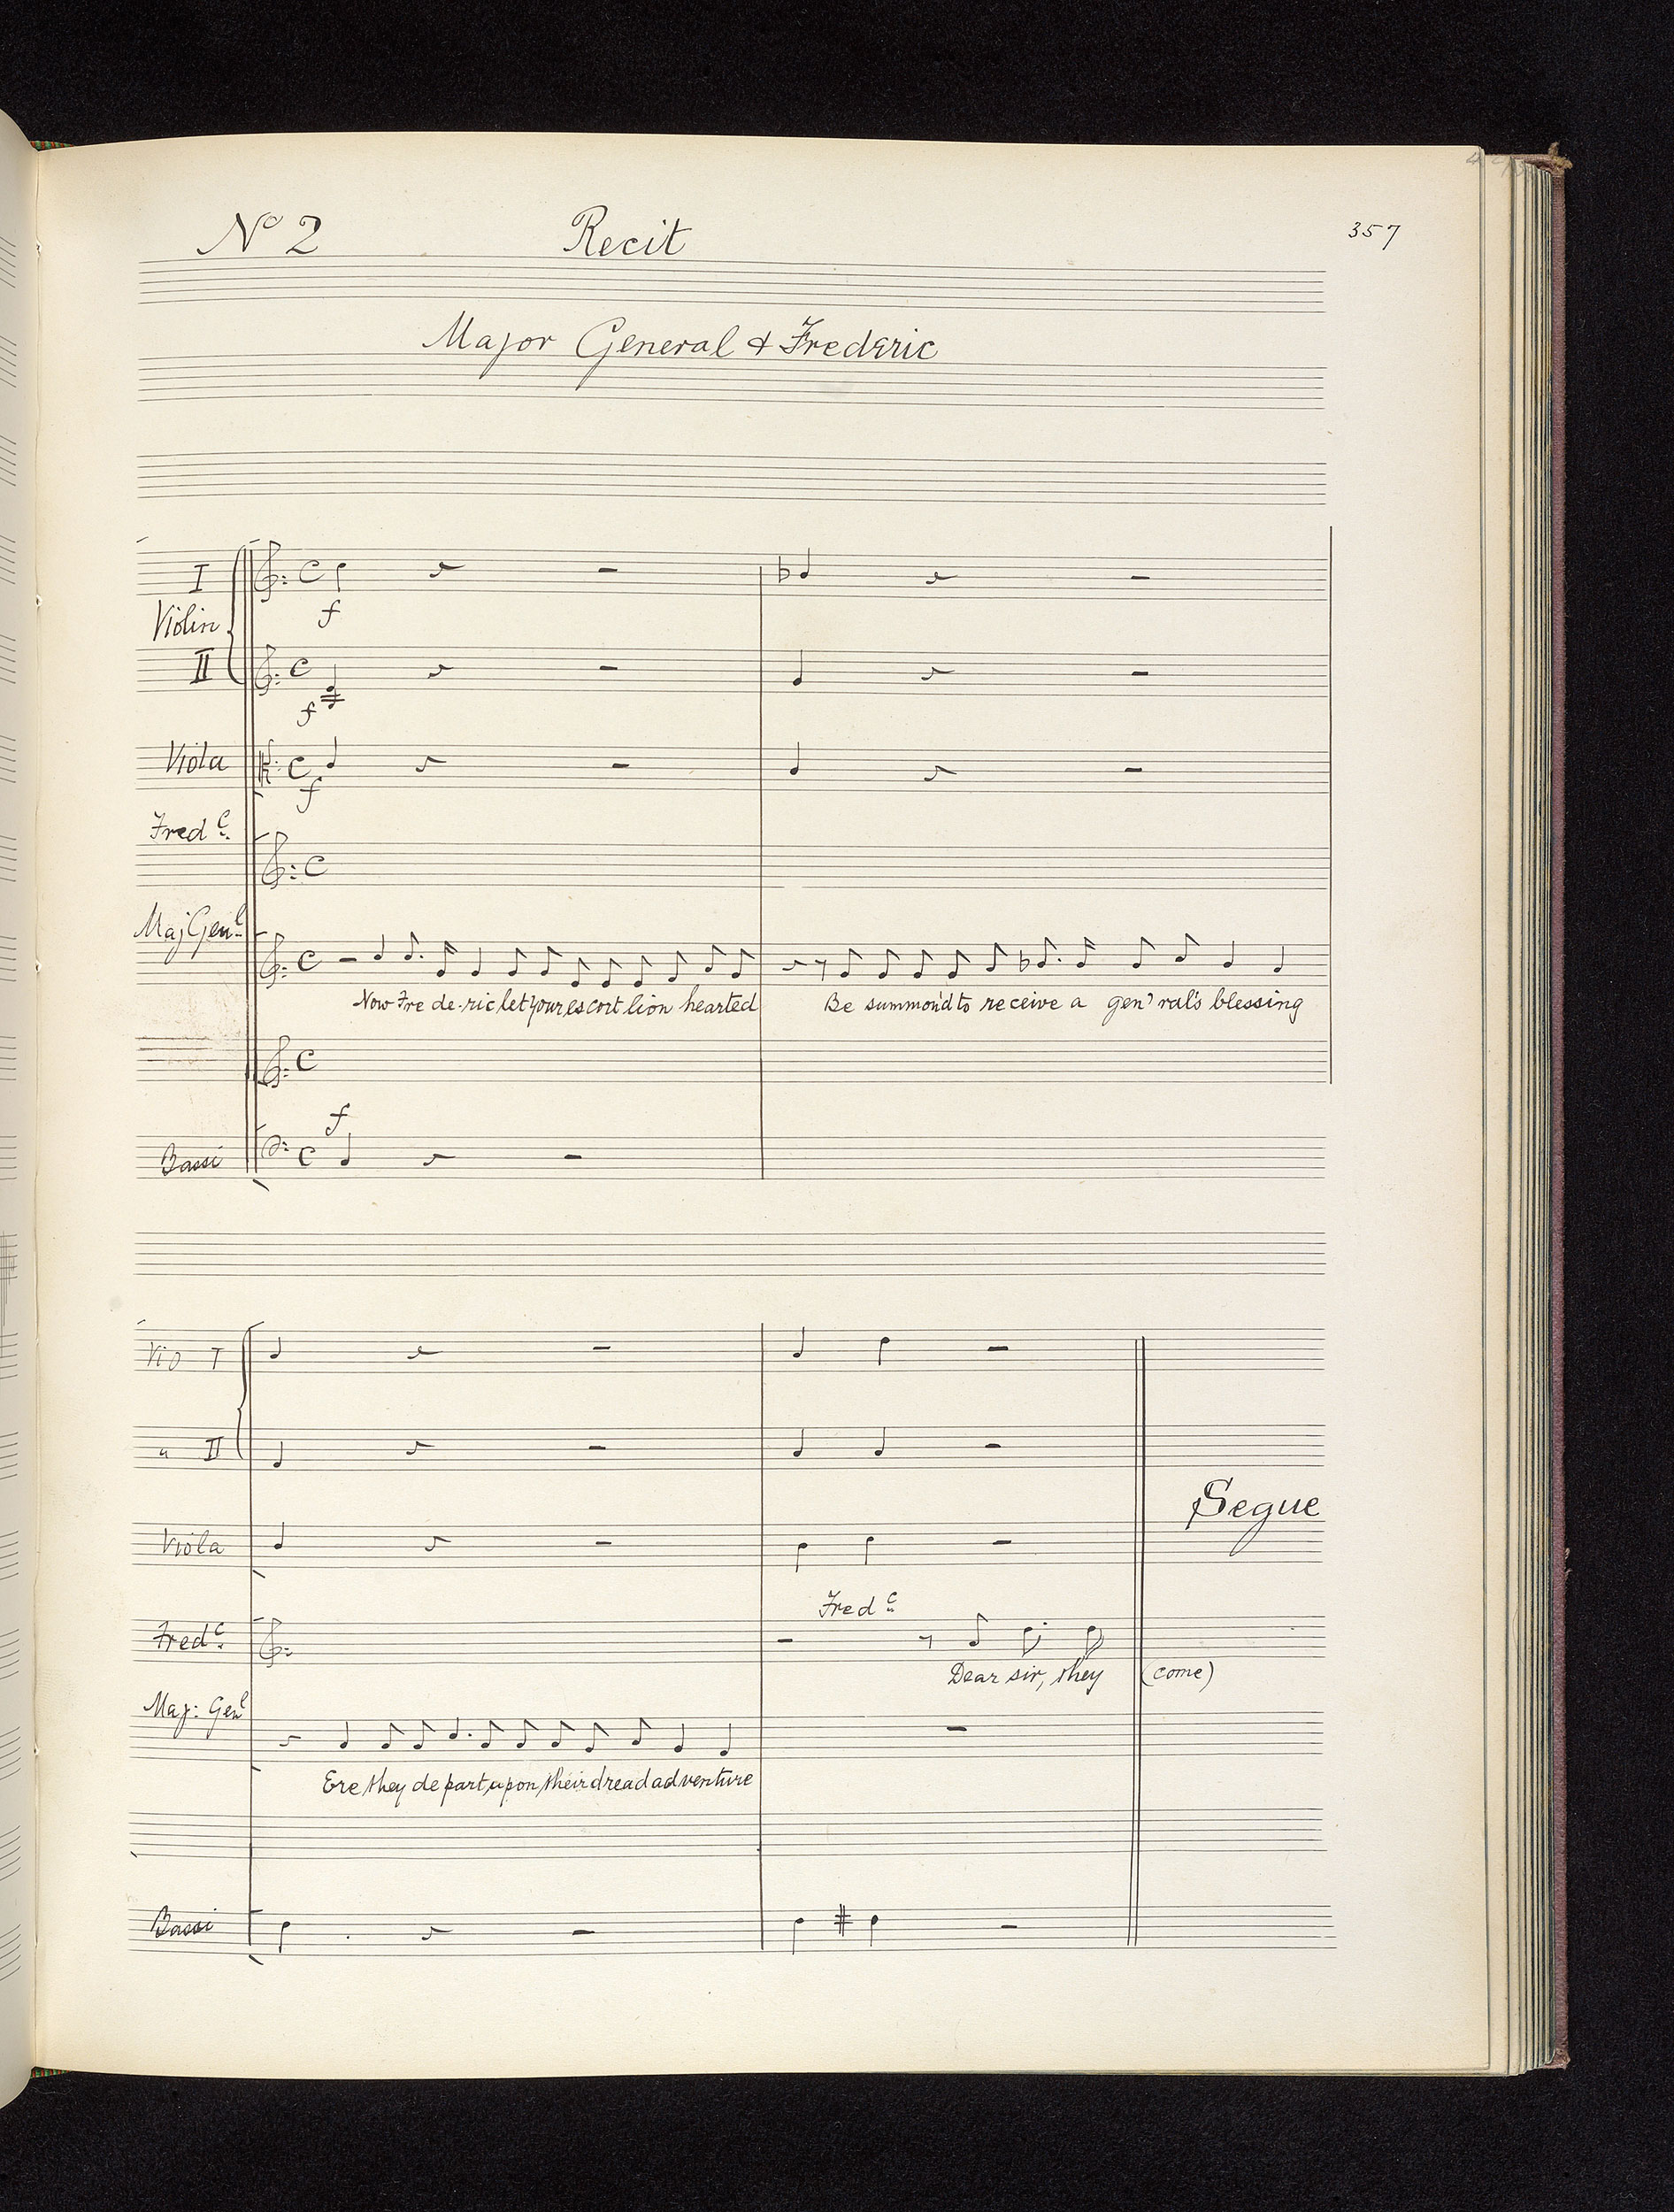 No 2 Recit 357
Major General & Frederic
I
Violin
f
II
f
Viola
f
Fredc.
Maj Genl
Now Fre de-ric let your es cort lion hearted Be summon'd to receive a gen'ral's blessing
f
Bassi
Vio I
" II
Segue
Viola
Fredc
Fredc.
Dear sir, they (come)
Maj: Genl
Ere they de part upon their dread adventure
Bassi